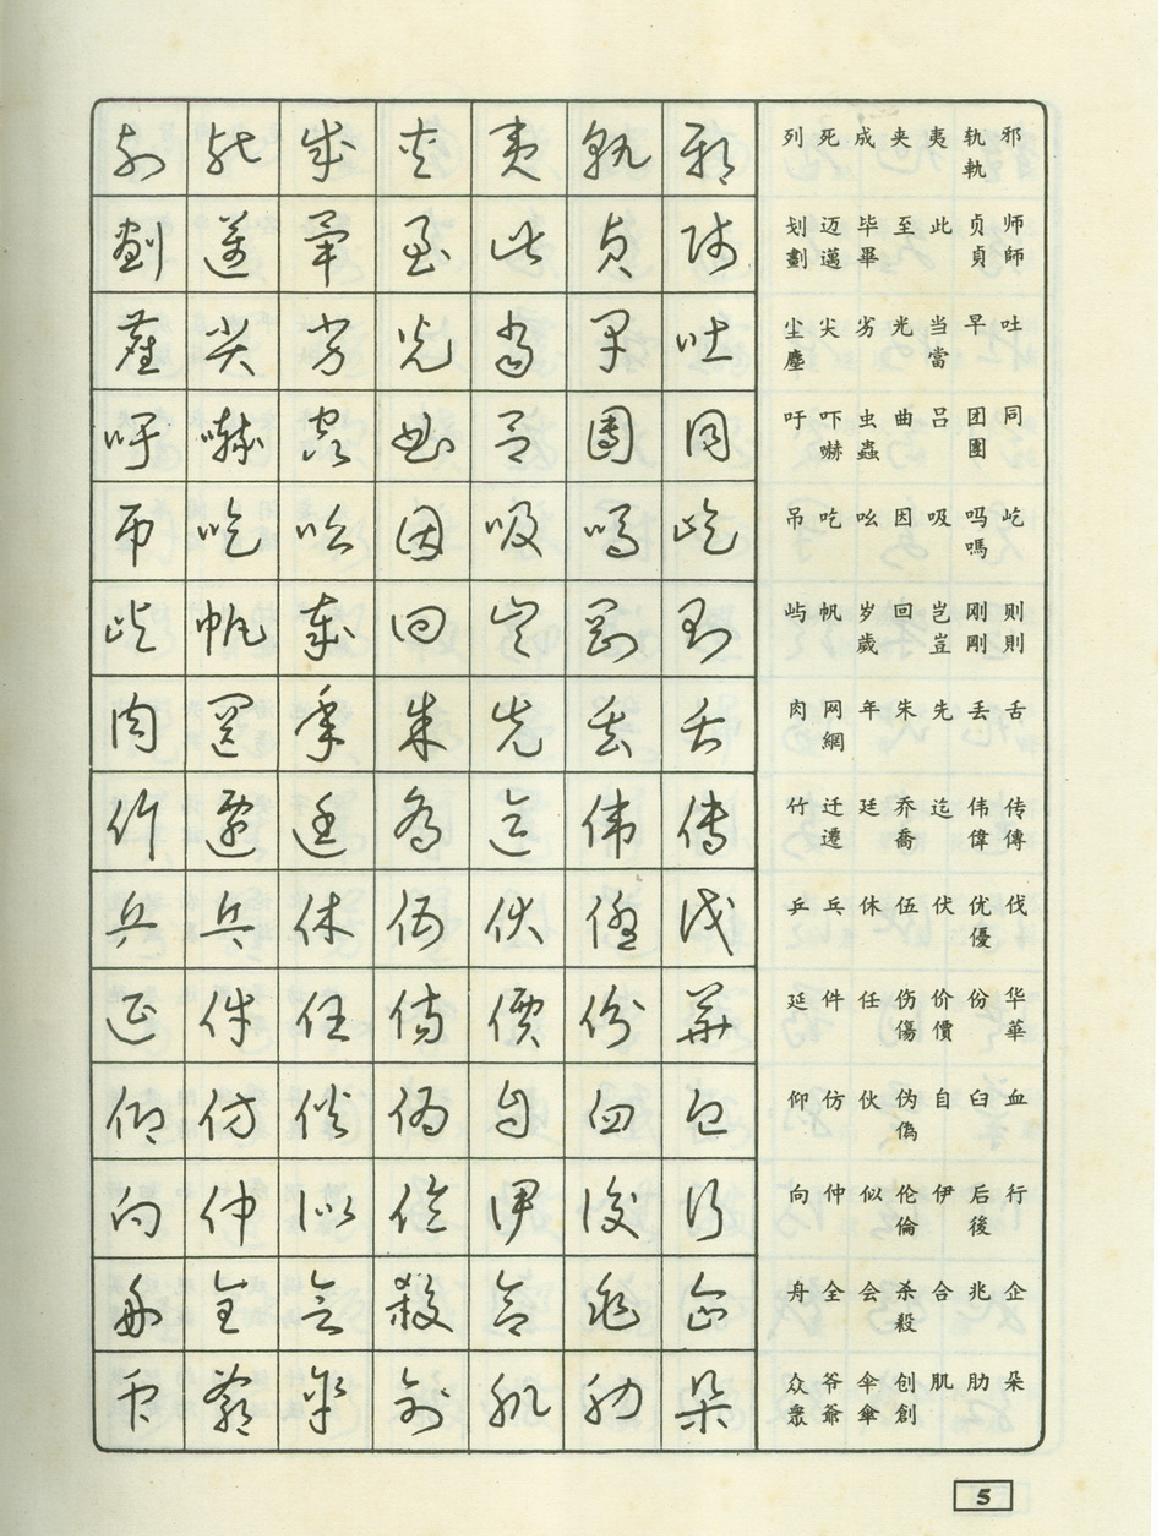 列 死 成 夹 夷 轨 邪
軌
划 迈 毕 至 此 贞 师
劃 邁 畢 貞 師
尘 尖 劣 光 当 早 吐
塵 當
吁 吓 虫 曲 吕 团 同
嚇 蟲 團
吊 吃 吆 因 吸 吗 屹
嗎
屿 帆 岁 回 岂 刚 则
歲 豈 剛 則
肉 网 年 朱 先 丢 舌
網
竹 迁 廷 乔 迄 伟 传
遷 喬 偉 傳
乒 乓 休 伍 伏 优 伐
優
延 件 任 伤 价 份 华
傷 價 華
仰 仿 伙 伪 自 臼 血
偽
向 仲 似 伦 伊 后 行
倫 後
舟 全 会 杀 合 兆 企
殺
众 爷 伞 创 肌 肋 朵
眾 爺 傘 創
5